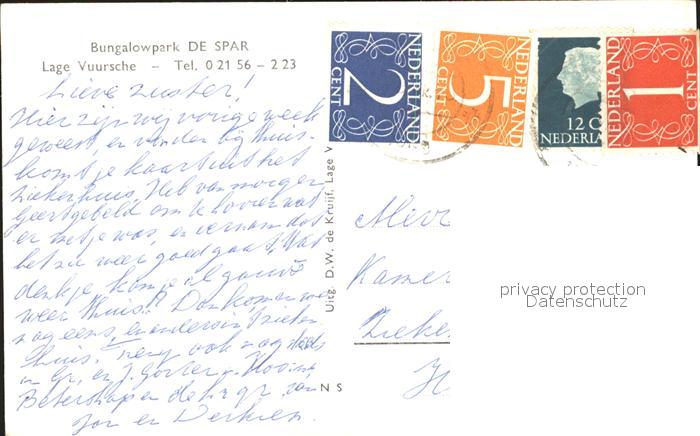 Bungalowpark DE SPAR
Lage Vuursche – Tel. 0 21 56 – 2 23
Lieve zuster!
Hier zijn wij vorige week
geweest, en vonden bij thuis-
komst je kaart uit het
ziekenhuis. Heb van morgen
Geert gebeld om te horen wat
er met je was, en vernam dat
het nu weer goed gaat. Wat
denk je, kom je al gauw
weer thuis? Dan komen we
nog eens en anders in 't zieken
thuis.
en J. Gorter
Beterschap en de hagr. van
Jan en
Uitg. D.W. de Kruijf, Lage V
N S
Mevr
Kamer
Zieke
H
2 CENT NEDERLAND
5 CENT NEDERLAND
12 C
NEDERLA
1 CENT NEDERLAND
privacy protection
Datenschutz